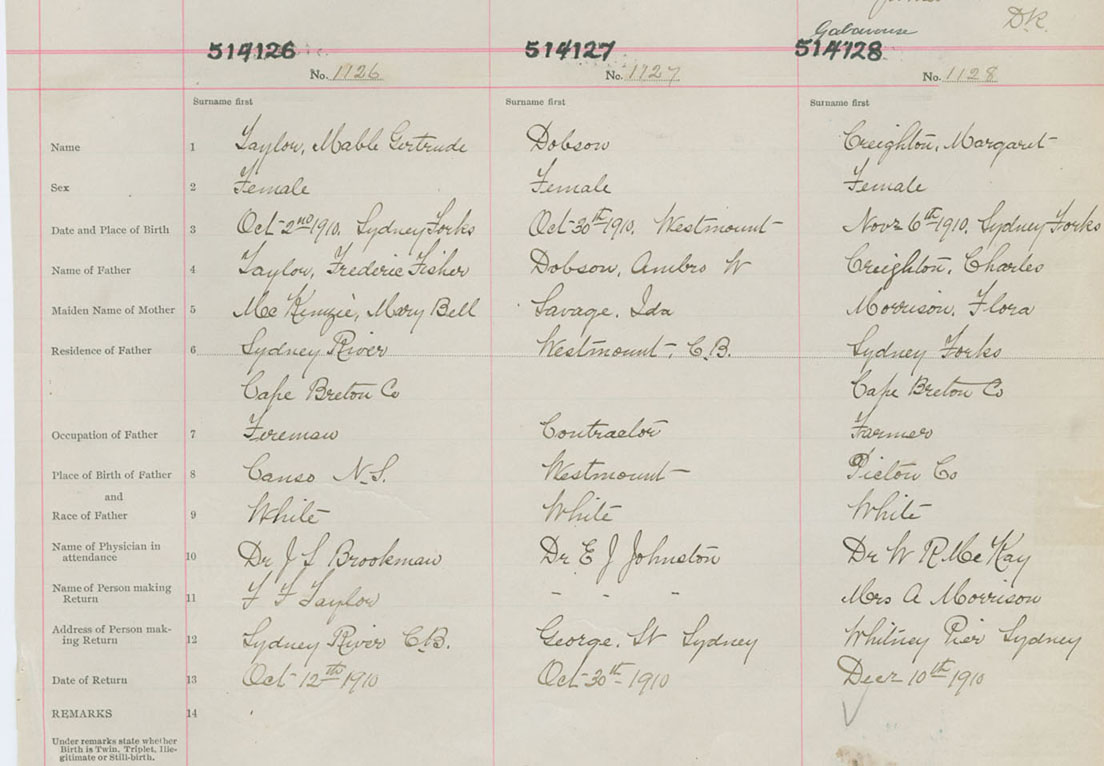 Gabarouse
DR.
514126 514127 514128
No. 1126 No. 1127 No. 1128
Surname first Surname first Surname first
Name 1 Taylor, Mable Gertrude Dobson Creighton, Margaret
Sex 2 Female Female Female
Date and Place of Birth 3 Oct 2nd 1910. Sydney Forks Oct 30th 1910. Westmount Novr 6th 1910. Sydney Forks
Name of Father 4 Taylor, Frederic Fisher Dobson, Ambro W Creighton, Charles
Maiden Name of Mother 5 McKenzie, Mary Bell Savage, Ida Morrison, Flora
Residence of Father 6 Sydney River Westmount, C.B. Sydney Forks
Cape Breton Co Cape Breton Co
Occupation of Father 7 Fireman Contractor Farmer
Place of Birth of Father 8 Canso N.S. Westmount Pictou Co
and
Race of Father 9 White White White
Name of Physician in
attendance 10 Dr J S Brookman Dr E J Johnston Dr W R McKay
Name of Person making
Return 11 F F Taylor - - - Mrs A Morrison
Address of Person mak-
ing Return 12 Sydney River C.B. George. St Sydney Whitney Pier Sydney
Date of Return 13 Oct 12th 1910 Oct 30th 1910 Decr 10th 1910
REMARKS 14
Under remarks state whether
Birth is Twin, Triplet, Ille-
gitimate or Still-birth.